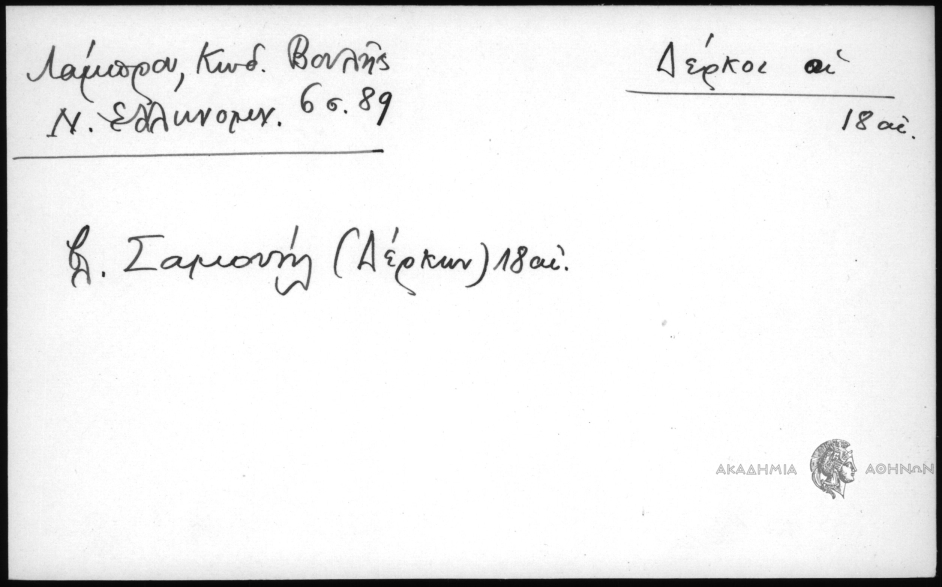 Λάμπρου, Κώδ. Βουλῆς
Ν. Ἑλληνομν. 6 σ. 89
Δέρκοι αἱ
18 αἰ.
βλ. Σαμουήλ (Δέρκων) 18 αἰ.
ΑΚΑΔΗΜΙΑ ΑΘΗΝΩΝ